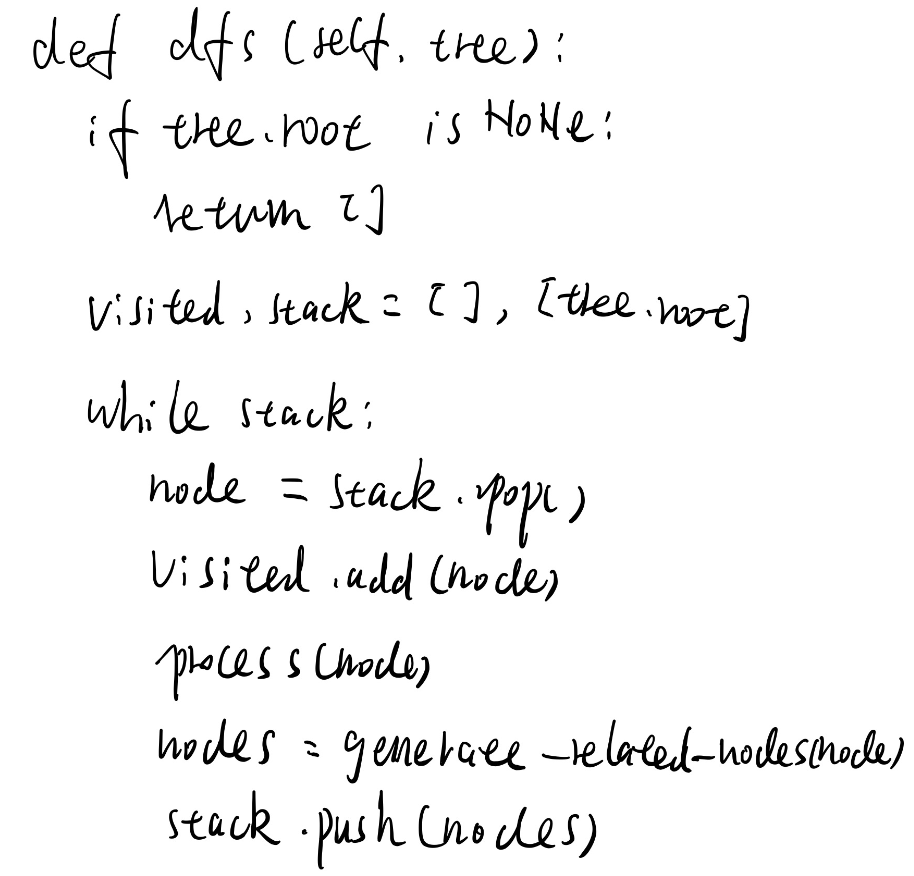 def dfs (self, tree):
if tree.root is None:
return []
visited, stack = [], [tree.root]
while stack:
node = stack.pop()
visited.add(node)
process(node)
nodes = generate_related_nodes(node)
stack.push(nodes)